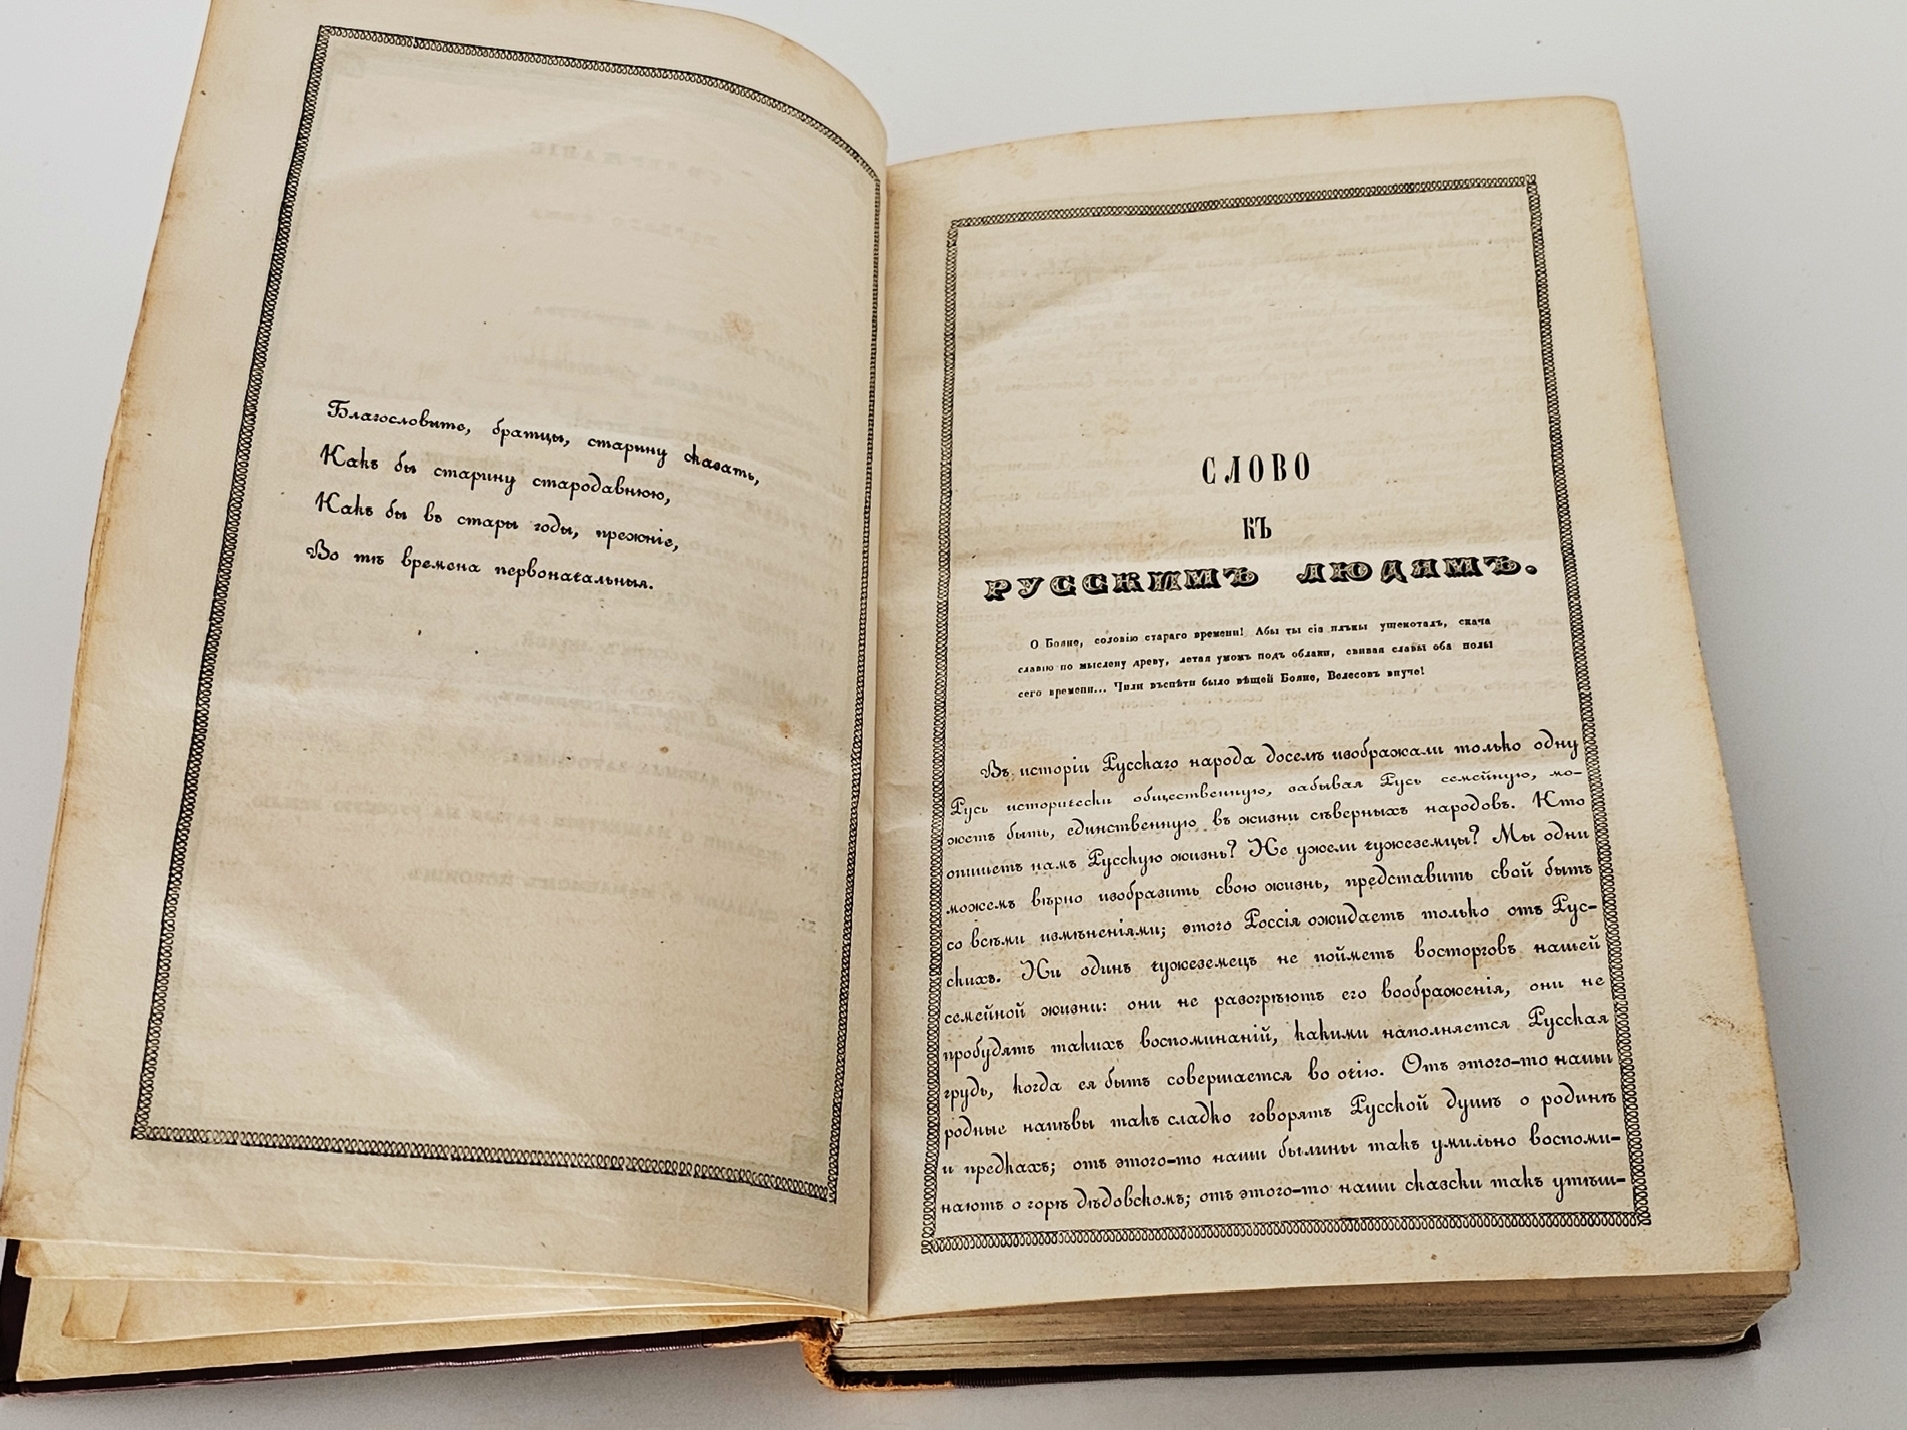 Благословите, братцы, старину сказать,
Какъ бы старину стародавнюю,
Какъ бы въ стары годы, прежніе,
Во тѣ времена первоначальныя.
СЛОВО
КЪ
РУССКИМЪ ЛЮДЯМЪ.
О Бояне, соловію стараго времени! Абы ты сіа плъкы ущекоталъ, скача
славію по мыслену древу, летая умомъ подъ облаки, свивая славы оба полы
сего времени... Чили въспѣти было вѣщей Бояне, Велесовъ внуче!
Въ исторіи Русскаго народа доселѣ изображали только одну
Русь исторически общественную, забывая Русь семейную, мо-
жетъ быть, единственную въ жизни сѣверныхъ народовъ. Кто
опишетъ намъ Русскую жизнь? Не ужели чужеземцы? Мы одни
можемъ вѣрно изобразить свою жизнь, представить свой бытъ
со всѣми измѣненіями; этого Россія ожидаетъ только отъ Рус-
скихъ. Ни одинъ чужеземецъ не пойметъ восторговъ нашей
семейной жизни: они не разогрѣютъ его воображенія, они не
пробудятъ такихъ воспоминаній, какими наполняется Русская
грудь, когда ея бытъ совершается во очію. Отъ этого-то наши
родные напѣвы такъ сладко говорятъ Русской душѣ о родинѣ
и предкахъ; отъ этого-то наши былины такъ умильно воспоми-
наютъ о горѣ дѣдовскомъ; отъ этого-то наши сказки такъ утѣш-